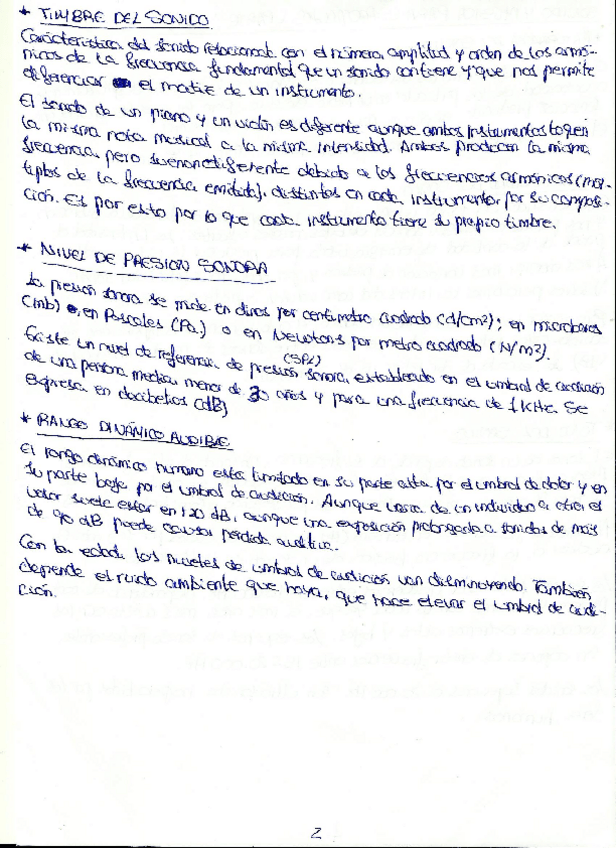 * TIMBRE DEL SONIDO
Característica del sonido relacionada con el número, amplitud y orden de los armó-
nicos de la frecuencia fundamental que un sonido contiene y que nos permite
diferenciar el matiz de un instrumento.
El sonido de un piano y un violín es diferente aunque ambos instrumentos toquen
la misma nota musical a la misma intensidad. Ambos producen la misma
frecuencia, pero suenan diferente debido a las frecuencias armónicas (múl-
tiplos de la frecuencia emitida), distintos en cada instrumento, por su composi-
ción. Es por esto por lo que cada instrumento tiene su propio timbre.
* NIVEL DE PRESION SONORA
La presión sonora se mide en dinas por centímetro cuadrado (d/cm2); en microbares
(mb) o, en Pascales (Pa.) o en Newtons por metro cuadrado (N/m2).
Existe un nivel de referencia de presión sonora, establecido en el umbral de audición
(SPL)
de una persona media, menor de 30 años y para una frecuencia de 1 KHz. Se
expresa en decibelios (dB)
* RANGO DINÁMICO AUDIBLE
El rango dinámico humano está limitado en su parte alta por el umbral de dolor y en
su parte baja por el umbral de audición. Aunque varia de un individuo a otro, el
valor suele estar en 120 dB, aunque una exposición prolongada a sonidos de más
de 90 dB puede causar perdida auditiva.
Con la edad, los niveles de umbral de audición van disminuyendo. También
depende el ruido ambiente que haya, que hace elevar el umbral de audi-
ción.
2